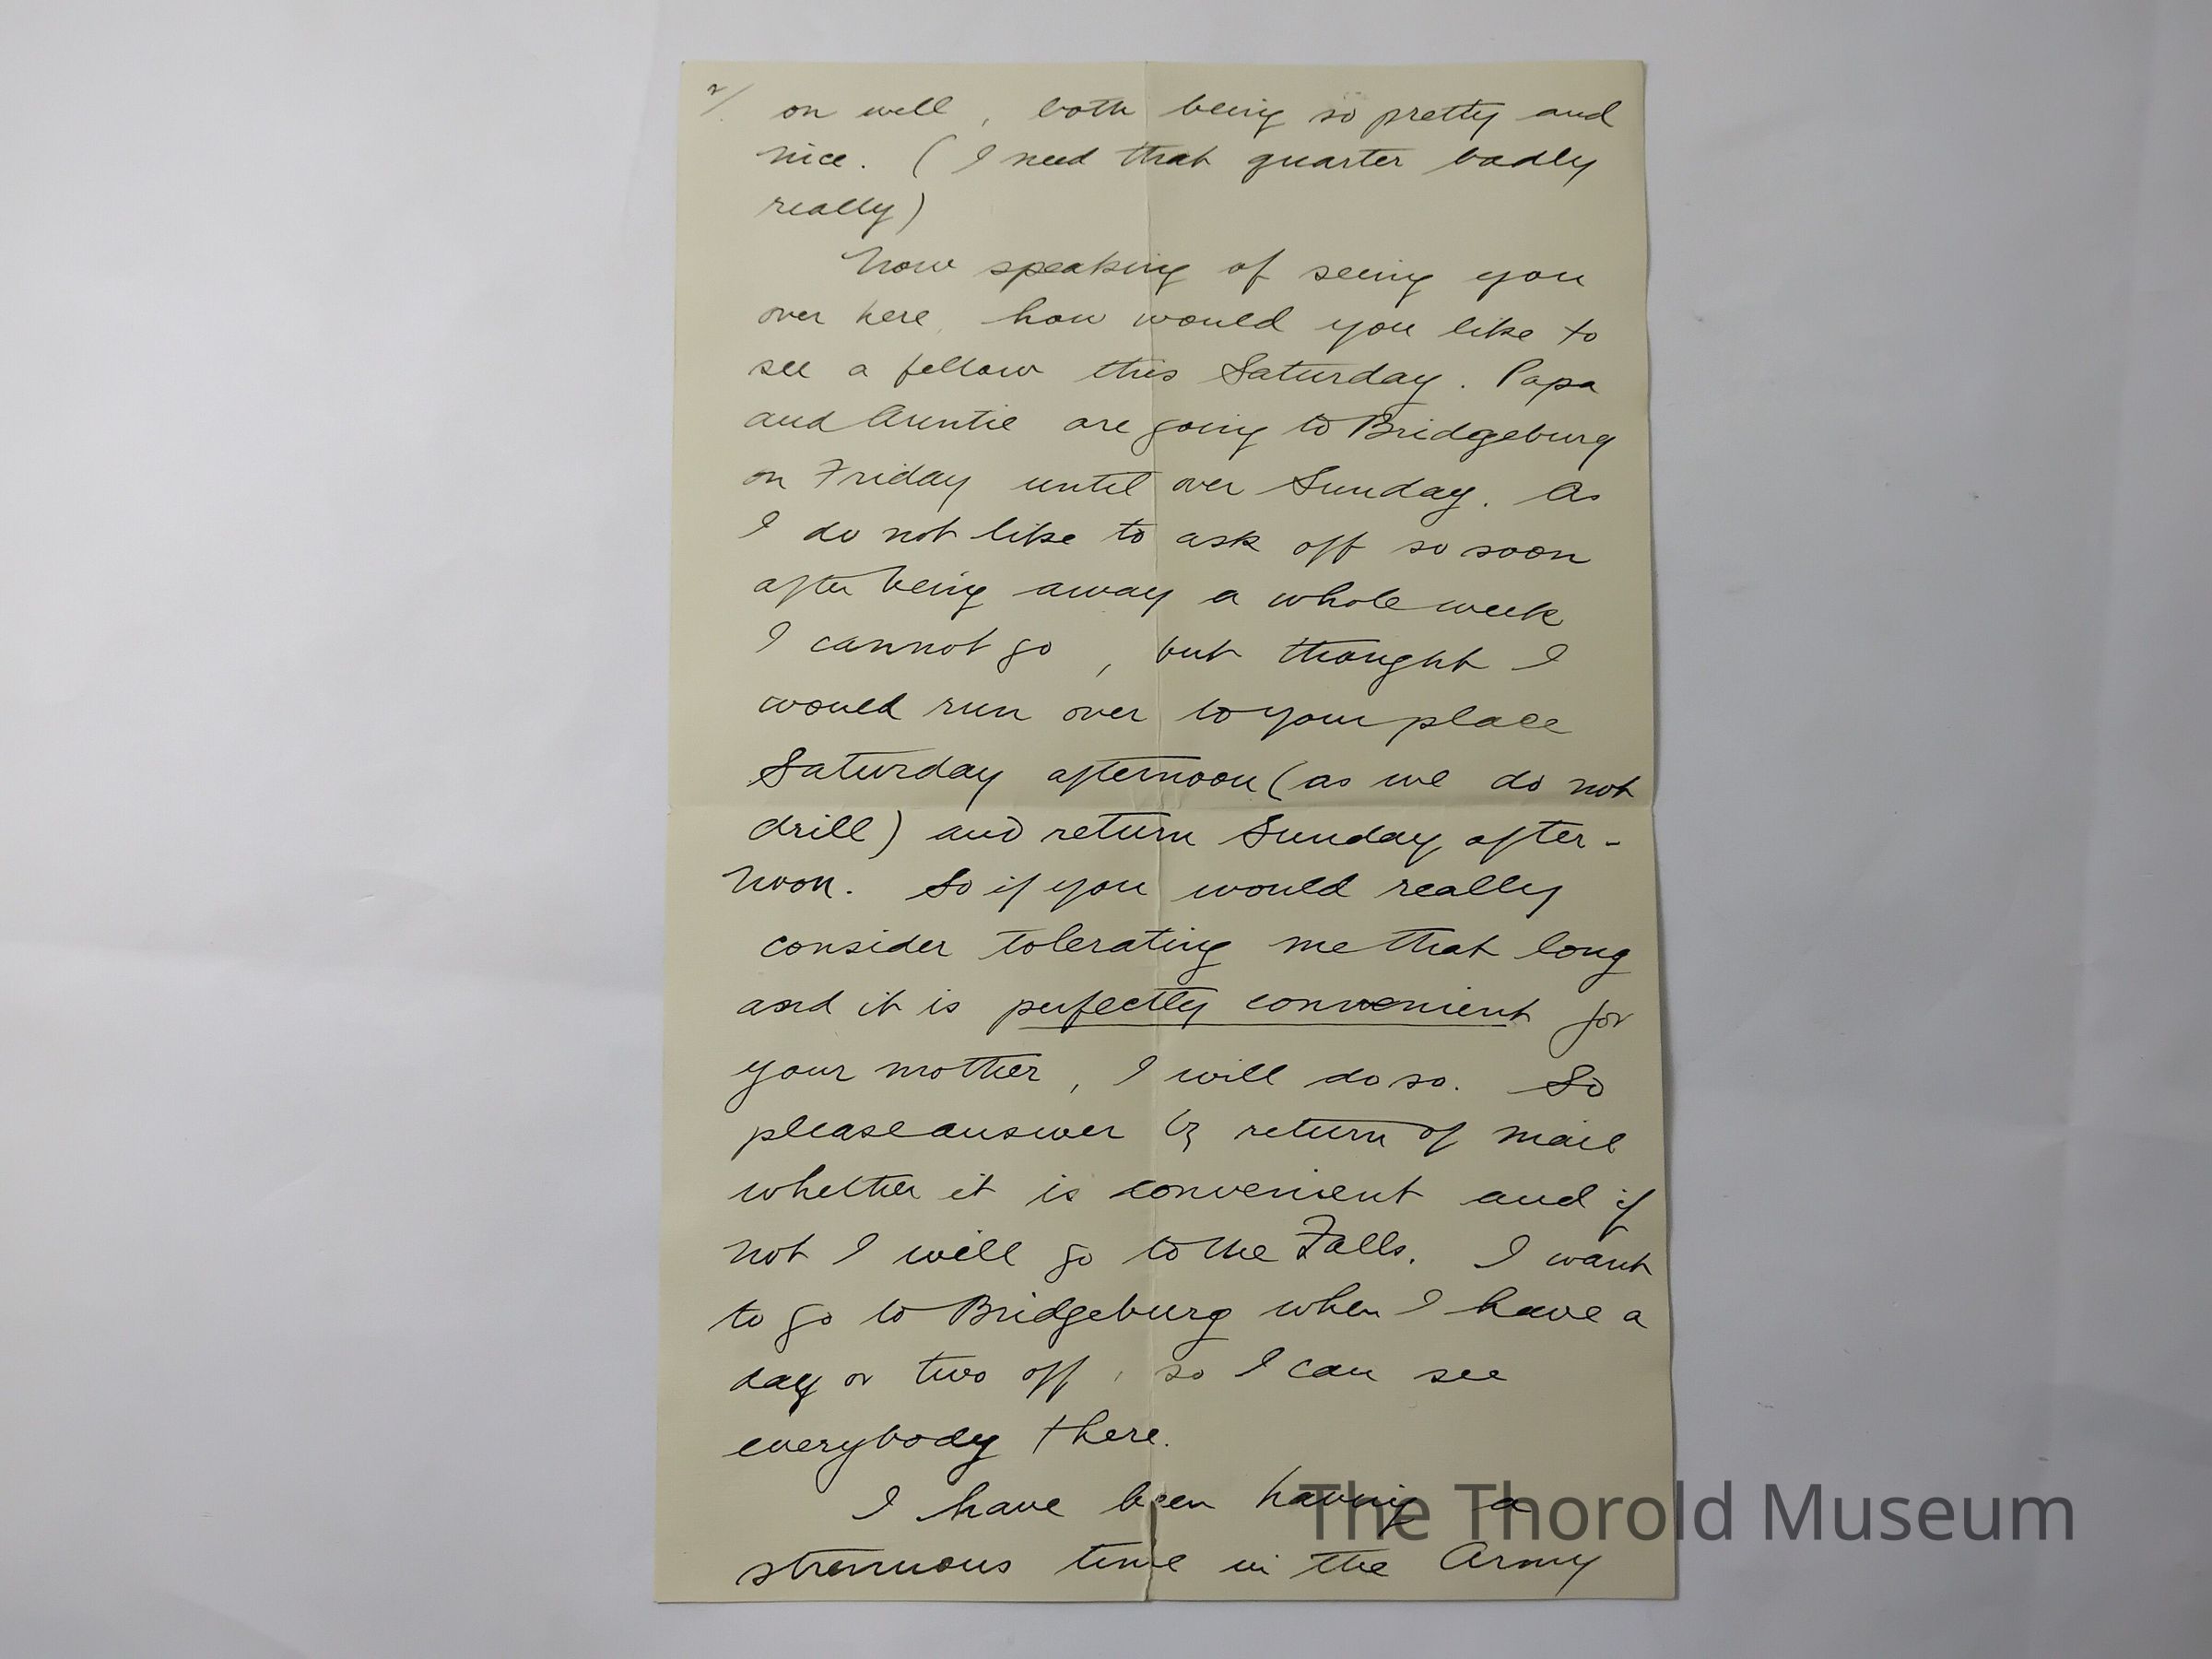 2/
on well, both being so pretty and
nice. (I need that quarter badly
really)
Now speaking of seeing you
over here, how would you like to
see a fellow this Saturday. Papa
and Auntie are going to Bridgeburg
on Friday until over Sunday. As
I do not like to ask off so soon
after being away a whole week
I cannot go, but thought I
would run over to your place
Saturday afternoon (as we do not
drill) and return Sunday after-
noon. So if you would really
consider tolerating me that long
and it is perfectly convenient for
your mother, I will do so. So
please answer by return of mail
whether it is convenient and if
not I will go to the Falls. I want
to go to Bridgeburg when I have a
day or two off, so I can see
everybody there.
I have been having a
strenuous time in the Army
The Thorold Museum